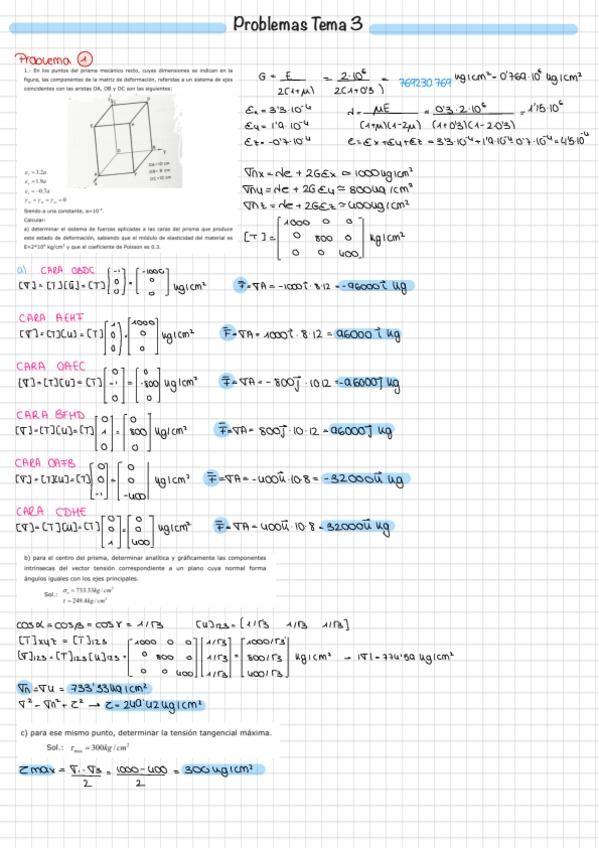 Problemas Tema 3
Problema 1
1.- En los puntos del prisma mecánico recto, cuyas dimensiones se indican en la
figura, las componentes de la matriz de deformación, referidas a un sistema de ejes
coincidentes con las aristas OA, OB y OC son las siguientes:
OA=10 cm
OB=8 cm
OC=12 cm
εx = 3.2a
εy = 1.9a
εz = -0.7a
γxy = γxz = γyz = 0
Siendo a una constante, a=10⁻⁴.
Calcular:
a) determinar el sistema de fuerzas aplicadas a las caras del prisma que produce
este estado de deformación, sabiendo que el módulo de elasticidad del material es
E=2*10⁶ kg/cm² y que el coeficiente de Poisson es 0.3.
G = E / 2(1+μ) = 2·10⁶ / 2(1+0'3) = 769230.769 kg/cm² = 0'769·10⁶ kg/cm²
εx = 3'3·10⁻⁴ λ = μE / (1+μ)(1-2μ) = 0'3·2·10⁶ / (1+0'3)(1-2·0'3) = 1'15·10⁶
εy = 1'9·10⁻⁴
εz = -0'7·10⁻⁴ e = εx+εy+εz = 3'3·10⁻⁴+1'9·10⁻⁴-0'7·10⁻⁴ = 4'5·10⁻⁴
σnx = λe + 2Gεx ≃ 1000 kg/cm²
σny = λe + 2Gεy ≃ 800 kg/cm²
σnz = λe + 2Gεz ≃ 400 kg/cm²
[T] = [1000 0 0; 0 800 0; 0 0 400] kg/cm²
a) CARA OBDC
[σ] = [T][ū] = [T][-1; 0; 0] = [-1000; 0; 0] kg/cm² F̄ = σA = -1000i·8·12 = -96000i kg
CARA AEHF
[σ] = [T][u] = [T][1; 0; 0] = [1000; 0; 0] kg/cm² F̄ = σA = 1000i·8·12 = 96000i kg
CARA OAEC
[σ] = [T][u] = [T][0; -1; 0] = [0; -800; 0] kg/cm² F̄ = σA = -800j·10·12 = -96000j kg
CARA BFHD
[σ] = [T][u] = [T][0; 1; 0] = [0; 800; 0] kg/cm² F̄ = σA = 800j·10·12 = 96000j kg
CARA OAFB
[σ] = [T][u] = [T][0; 0; -1] = [0; 0; -400] F̄ = σA = -400k·10·8 = -32000k kg
CARA CDHE
[σ] = [T][u] = [T][0; 0; 1] = [0; 0; 400] kg/cm² F̄ = σA = 400k·10·8 = 32000k kg
b) para el centro del prisma, determinar analítica y gráficamente las componentes
intrínsecas del vector tensión correspondiente a un plano cuya normal forma
ángulos iguales con los ejes principales.
Sol.: σn = 733.33kg / cm²
τ = 249.4kg / cm²
cosα = cosβ = cosγ = 1/√3 [u]123 = [1/√3 1/√3 1/√3]
[T]xyz = [T]123
[σ]123 = [T]123[u]123 = [1000 0 0; 0 800 0; 0 0 400][1/√3; 1/√3; 1/√3] = [1000/√3; 800/√3; 400/√3] kg/cm² → |σ| = 774'59 kg/cm²
σn = σu = 733'33 kg/cm²
σ² = σn² + τ² → τ = 249'42 kg/cm²
c) para ese mismo punto, determinar la tensión tangencial máxima.
Sol.: τmax = 300kg / cm²
τmax = σ1-σ3 / 2 = 1000-400 / 2 = 300 kg/cm²